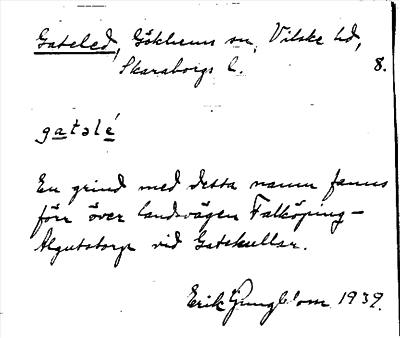 Gateled, Gökhems sn, Vilske hd,
Skaraborgs l. 8.
gatəlé
En grind med detta namn fanns
förr över landsvägen Falköping–
Ålgutstorp vid Gatekullar.
Erik Ljungblom 1939.